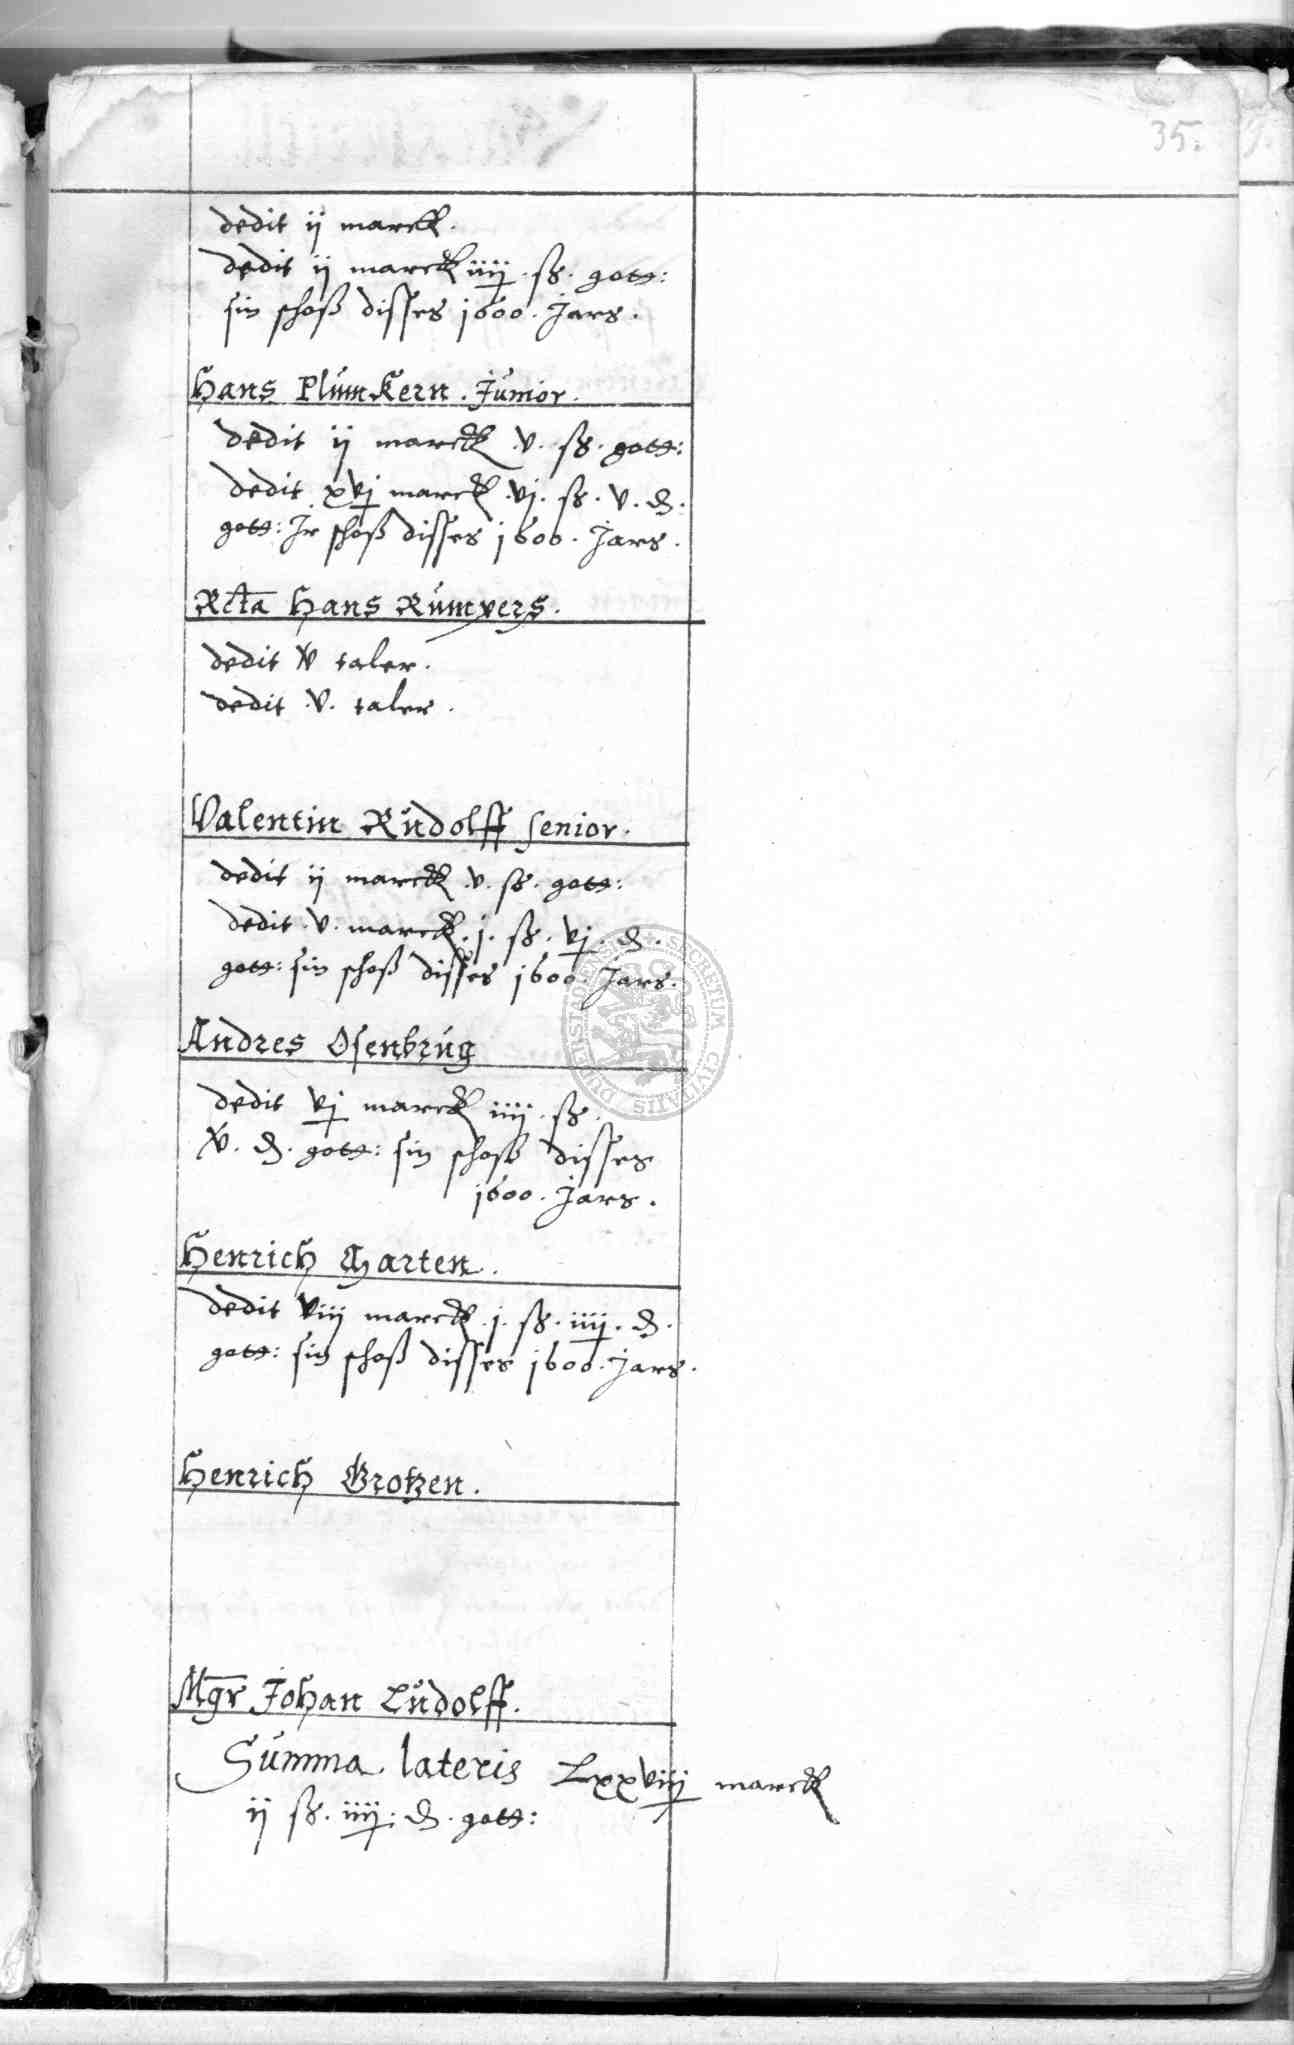 35.
dedit ij marck.
dedit ij marck iiij. ß. gott:
sin schoß disses 1600. Jars.
Hans Plümkern. Junior.
dedit ij marck v. ß. gott:
dedit xvj marck vj. ß. v. d.
gott: Jr schoß disses 1600. Jars.
Rcta Hans Rümpers.
dedit v taler.
dedit v. taler.
Valentin Rüdolff senior.
dedit ij marck v. ß. gott:
dedit v. marck. j. ß. vj. d.
gott: sin schoß disses 1600. Jars.
SECRETUM CIVITATIS DUDERSTADENSIS
Andres Osenbrüg
dedit vj marck iiij. ß.
v. d. gott: sin schoß disses
1600. Jars.
Henrich Garten.
dedit viij marck. j. ß. iiij. d.
gott: sin schoß disses 1600. Jars.
Henrich Grotzen.
Mgr Johan Lüdolff.
Summa lateris Lxxviij marck
ij ß. iiij. d. gott: